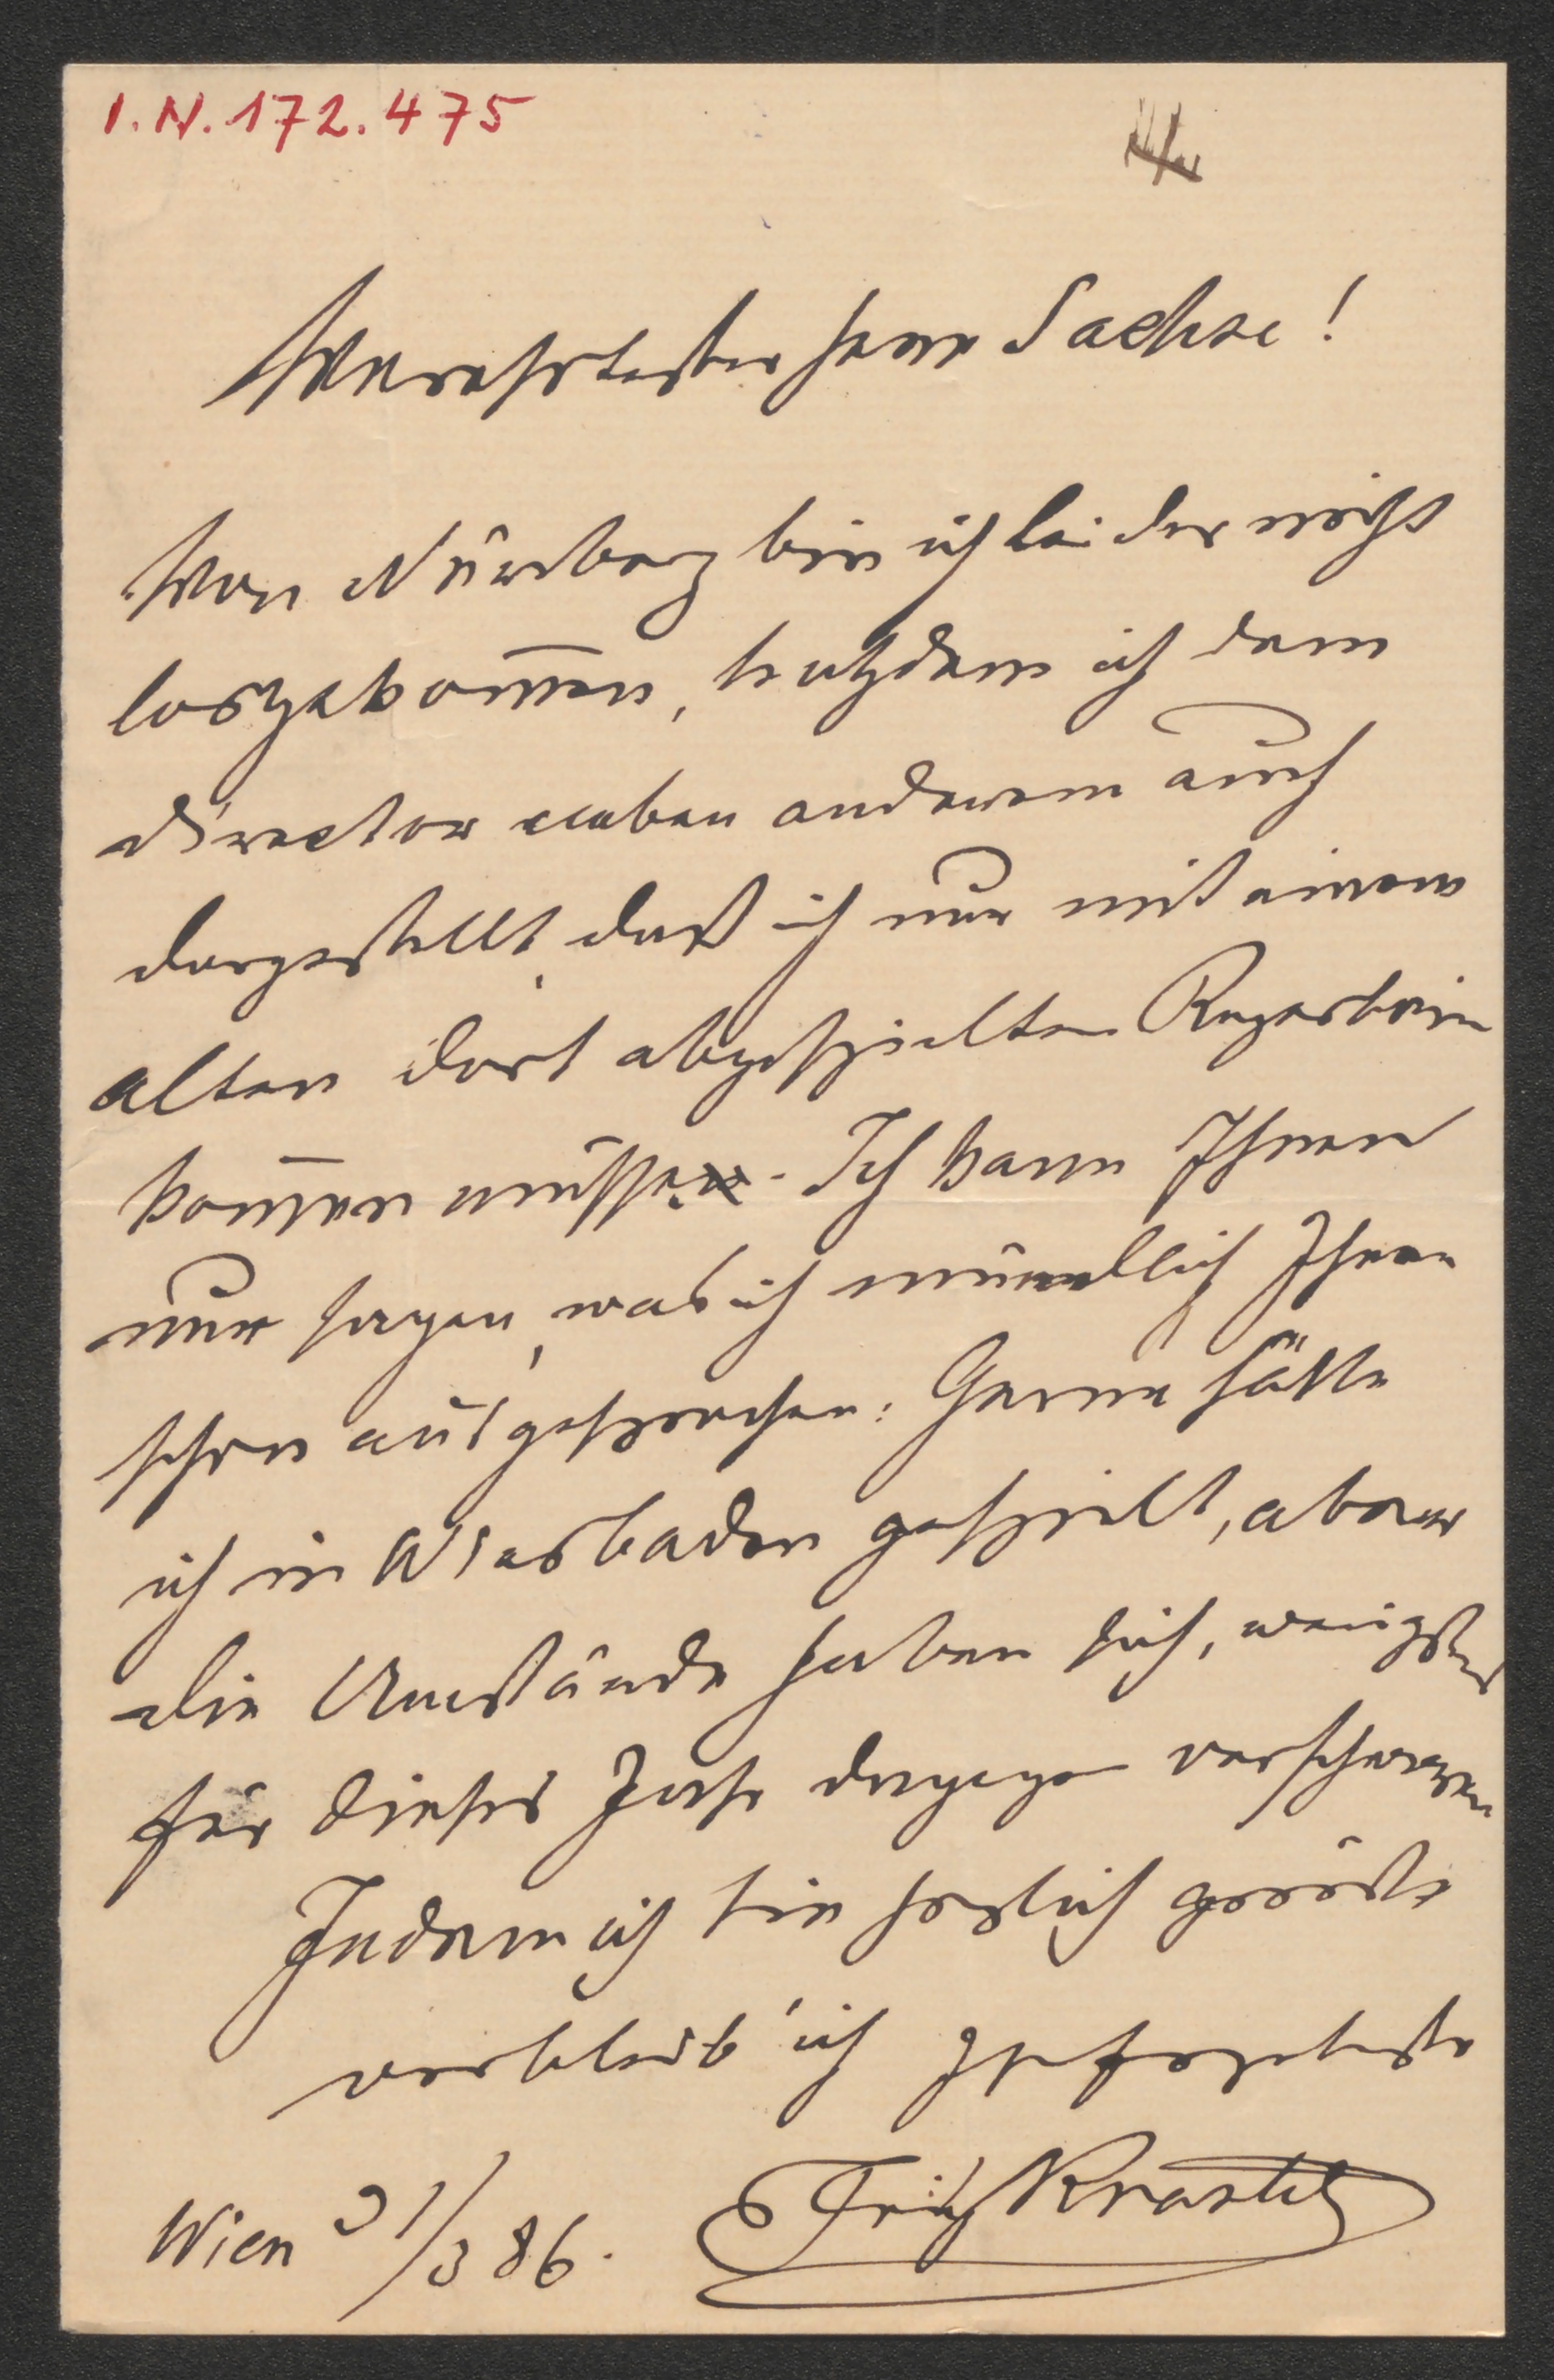 I.N. 172.475
Verehrtester Herr Sachse!
Von Nürnberg bin ich leider nicht
losgekom̄en, trotzdem ich dem
Director neben anderem auch
dargestellt, daß ich nur mit einem
alten dort abgespielten Repertoire
kom̄en müsse. Ich kann Ihnen
nur sagen, was ich mündlich Ihnen
schon ausgesprochen: Gerne hätte
ich in Wiesbaden gespielt, aber
die Umstände haben sich, wenigstens
für dieses Jahr dagegen verschworen
Indem ich Sie herzlich grüße
verbleib' ich
Fritz Krastel
Wien 31/3 86.